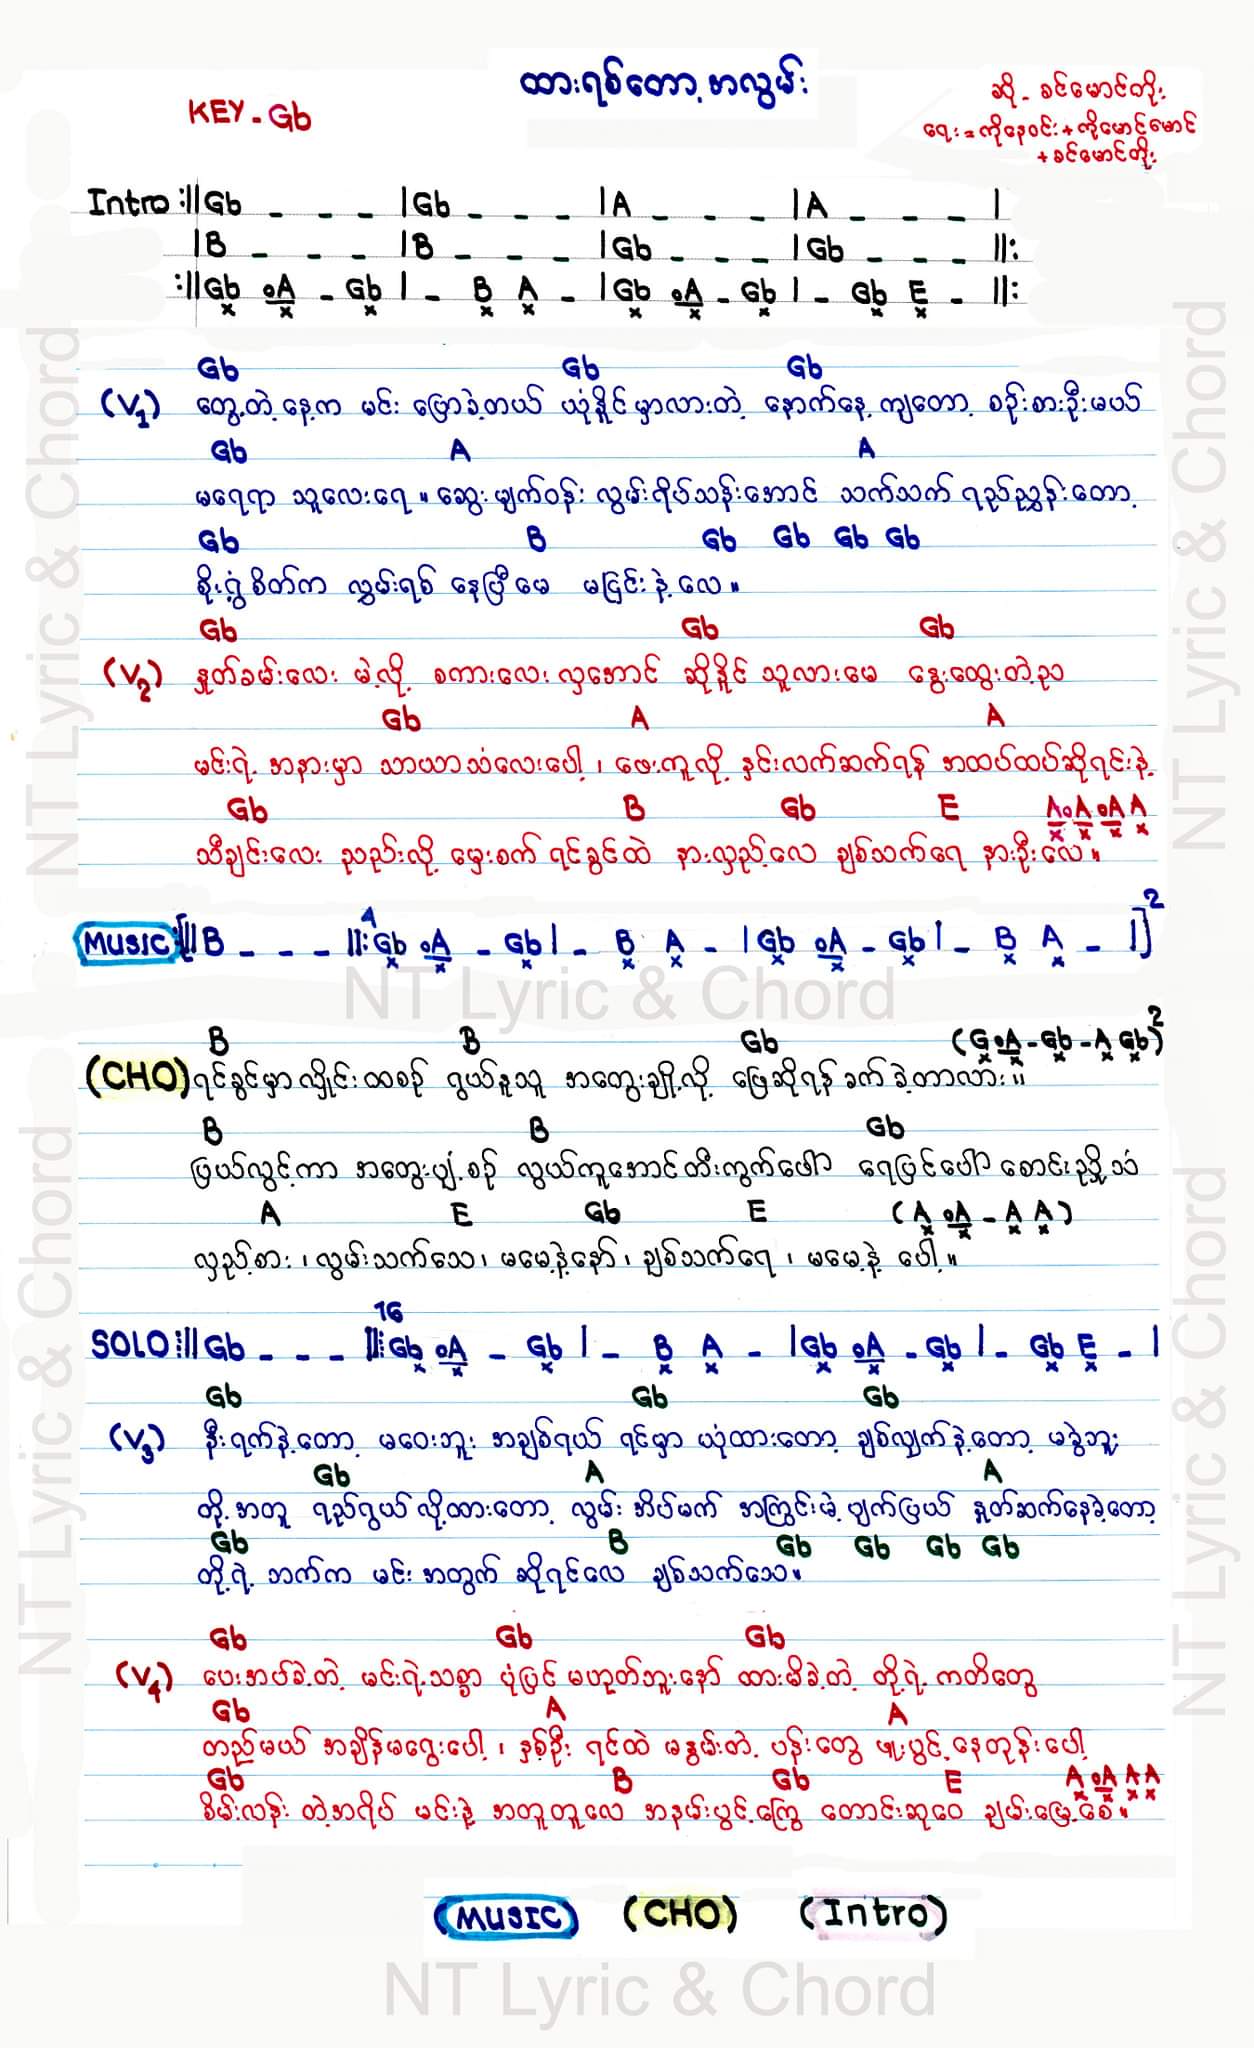 ထားရစ်တော့အလွမ်း
KEY - Gb
ဆို - ခင်မောင်တိုး
ရေး = ကိုနေဝင်း + ကိုမောင်မောင်
+ ခင်မောင်တိုး
Intro :||Gb _ _ _ |Gb _ _ _ |A _ _ _ |A _ _ _ |
|B _ _ _ |B _ _ _ |Gb _ _ _ |Gb _ _ _ ||:
:||Gb oA - Gb | - B A - |Gb oA - Gb | - Gb E - ||:
Gb Gb Gb
(V1) တွေ့တဲ့နေ့က မင်း ပြောခဲ့တယ် ယုံနိုင်မှာလားတဲ့ နောက်နေ့ကျတော့ စဉ်းစားဦးမယ်
Gb A A
မရေရာ သူလေးရေ ။ ဆွေးမျက်ဝန်း လွမ်းရိပ်သန်းအောင် သက်သက် ရည်ညွှန်းတော့
Gb B Gb Gb Gb Gb
စိုးရွံ့စိတ်က လွှမ်းရစ် နေပြီမေ မငြင်းနဲ့လေ ။
Gb Gb Gb
(V2) နှုတ်ခမ်းလေး မဲ့လို့ စကားလေးလှအောင် ဆိုနိုင် သူလားမေ နွေးထွေးတဲ့ည
Gb A A
မင်းရဲ့ အနားမှာ သာယာသံလေးပေါ့ ၊ ဖေးကူလို့ နှင်းလက်ဆက်ရန် အထပ်ထပ်ဆိုရင်းနဲ့
Gb B Gb E A oA oA A
သီချင်းလေး ညည်းလို့ မှေးစက် ရင်ခွင်ထဲ နားလှည့်လေ ချစ်သက်ရေ နားဦးလေ ။
MUSIC :[||B _ _ _ ||: 4 Gb oA - Gb | - B A - |Gb oA - Gb | - B A - |]2
B B Gb (G oA - Gb - A Gb)2
(CHO) ရင်ခွင်မှာလှိုင်းထစဉ် ရွယ်နုသူ အတွေးချို့လို့ ဖြေဆိုရန်ခက်ခဲ့တာလား ။
B B Gb
ပြယ်လွင့်ကာ အတွေးပျံ့စဉ် လွယ်ကူအောင်တီးကွက်ပေါ် ရေပြင်ပေါ် စောင်းညှို့သံ
A E Gb E (A oA - A A)
လှည့်စား ၊ လွမ်းသက်သေ ၊ မမေ့နဲ့နော် ၊ ချစ်သက်ရေ ၊ မမေ့နဲ့ ပေါ့ ။
SOLO :||Gb _ _ _ ||: 16 Gb oA - Gb | - B A - |Gb oA - Gb | - Gb E - |
Gb Gb Gb
(V3) နီးရက်နဲ့တော့ မဝေးဘူး အချစ်ရယ် ရင်မှာ ယုံထားတော့ ချစ်လျှက်နဲ့တော့ မခွဲဘူး
Gb A A
တို့အတူ ရည်ရွယ်လို့ထားတော့ လွမ်းအိပ်မက် အကြွင်းမဲ့ပျက်ပြယ် နှုတ်ဆက်နေခဲ့တော့
Gb B Gb Gb Gb Gb
တို့ရဲ့ ဘက်က မင်းအတွက် ဆိုရင်လေ ချစ်သက်သေ ။
Gb Gb Gb
(V4) ပေးအပ်ခဲ့တဲ့ မင်းရဲ့သစ္စာ ပုံပြင်မဟုတ်ဘူးနော် ထားမိခဲ့တဲ့ တို့ရဲ့ ကတိတွေ
Gb A A
တည်မယ် အချိန်မရွေးပေါ့ ၊ နှစ်ဦး ရင်ထဲ မနွမ်းတဲ့ ပန်းတွေ ဖူးပွင့်နေတုန်းပေါ့
Gb B Gb E A oA A A
စိမ်းလန်း တဲ့အရိပ် မင်းနဲ့ အတူတူလေ အနမ်းပွင့်ကြွေ တောင်းဆုဝေ ချမ်းမြေ့စေ ။
(MUSIC) (CHO) (Intro)
NT Lyric & Chord
NT Lyric & Chord
NT Lyric & Chord
NT Lyric & Chord
NT Lyric & Chord
NT Lyric & Chord